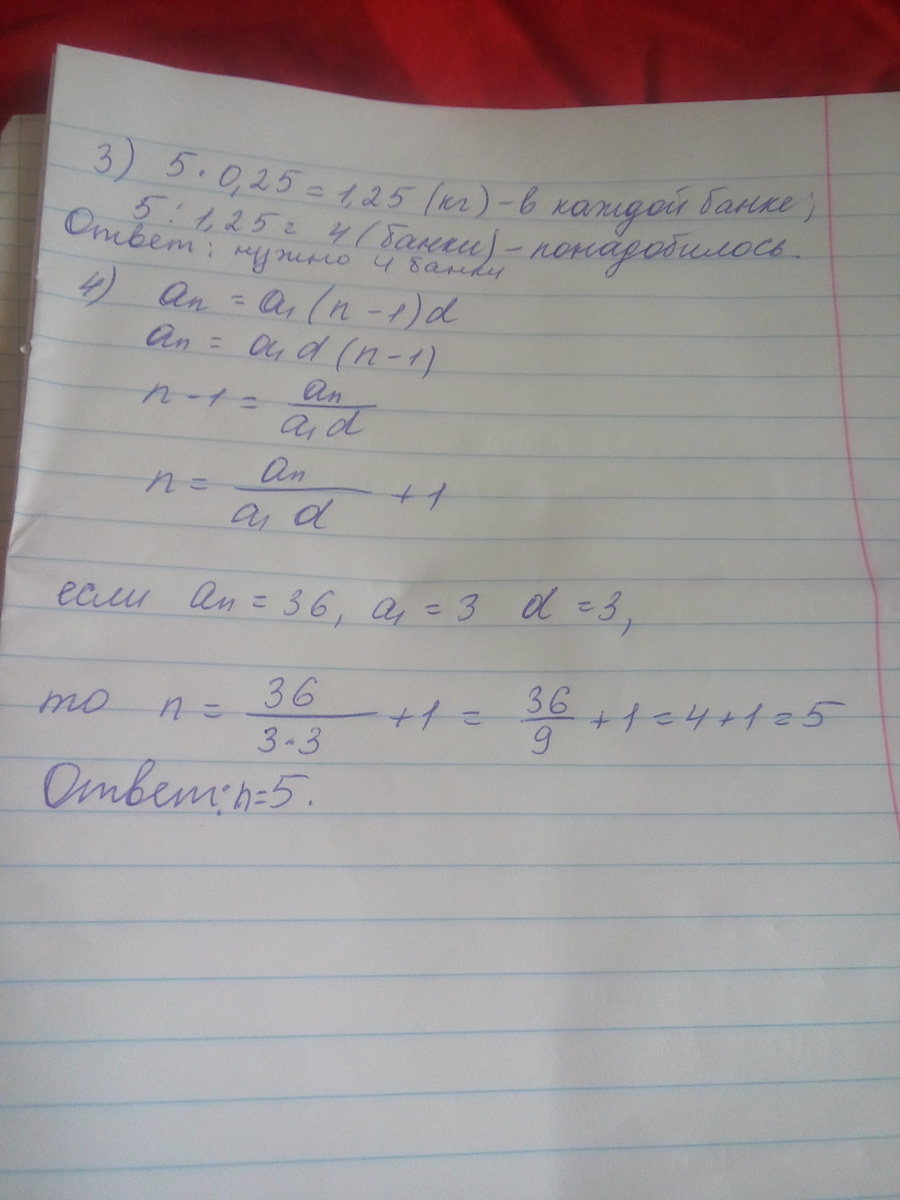 3) 5 · 0,25 = 1,25 (кг) - в каждой банке;
5 : 1,25 = 4 (банки) - понадобилось.
Ответ: нужно 4 банки
4) an = a1 (n - 1) d
an = a1 d (n - 1)
n - 1 = an / a1 d
n = an / a1 d + 1
если an = 36, a1 = 3 d = 3,
то n = 36 / 3·3 + 1 = 36/9 + 1 = 4 + 1 = 5
Ответ: n=5.